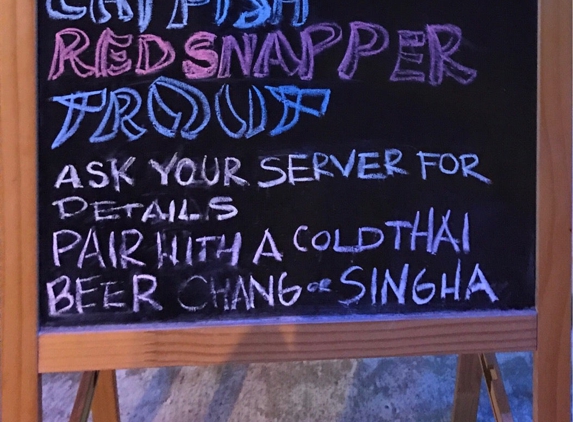 CATFISH
RED SNAPPER
TROUT
ASK YOUR SERVER FOR
DETAILS
PAIR WITH A COLD THAI
BEER CHANG OR SINGHA